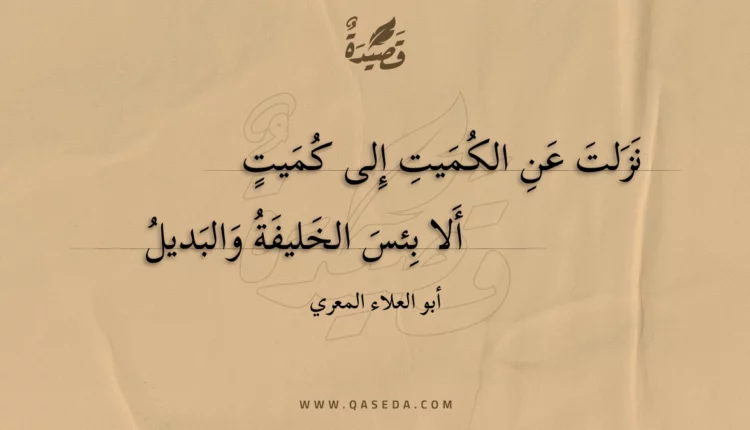 قَصِيدَةٌ
نَزَلتَ عَنِ الكُمَيتِ إِلى كُمَيتٍ
أَلا بِئسَ الخَليفَةُ وَالبَديلُ
أبو العلاء المعري
WWW.QASEDA.COM